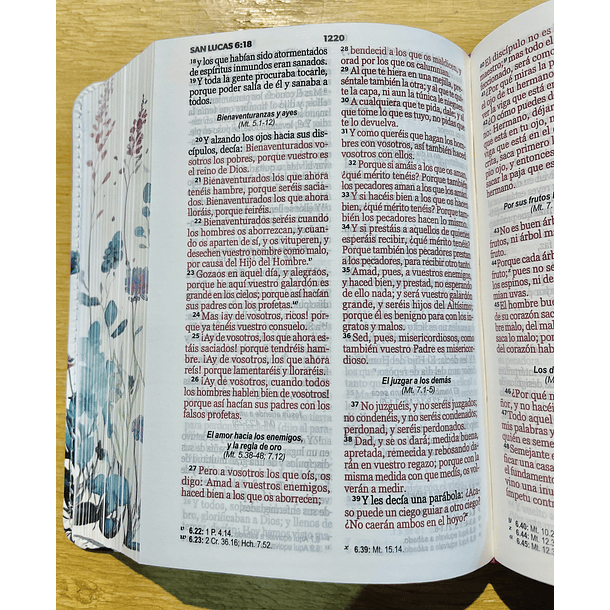 SAN LUCAS 6:18
1220
18 y los que habían sido atormentados
de espíritus inmundos eran sanados.
19 Y toda la gente procuraba tocarle,
porque poder salía de él y sanaba a
todos.
Bienaventuranzas y ayes
(Mt. 5.1-12)
20 Y alzando los ojos hacia sus dis-
cípulos, decía: Bienaventurados vo-
sotros los pobres, porque vuestro es
el reino de Dios.
21 Bienaventurados los que ahora
tenéis hambre, porque seréis sacia-
dos. Bienaventurados los que ahora
lloráis, porque reiréis.
22 Bienaventurados seréis cuando
los hombres os aborrezcan, y cuando
os aparten de sí, y os vituperen, y
desechen vuestro nombre como malo,
por causa del Hijo del Hombre.
23 Gozaos en aquel día, y alegraos,
porque he aquí vuestro galardón es
grande en los cielos; porque así hacían
sus padres con los profetas.
24 Mas ¡ay de vosotros, ricos! por-
que ya tenéis vuestro consuelo.
25 ¡Ay de vosotros, los que ahora es-
táis saciados! porque tendréis ham-
bre. ¡Ay de vosotros, los que ahora
reís! porque lamentaréis y lloraréis.
26 ¡Ay de vosotros, cuando todos
los hombres hablen bien de vosotros!
porque así hacían sus padres con los
falsos profetas.
El amor hacia los enemigos,
y la regla de oro
(Mt. 5.38-48; 7.12)
27 Pero a vosotros los que oís, os
digo: Amad a vuestros enemigos,
haced bien a los que os aborrecen;
6.22: 1 P. 4.14.
6.23: 2 Cr. 36.16; Hch. 7.52.
28 bendecid a los que os maldicen, y
orad por los que os calumnian.
29 Al que te hiera en una mejilla, pre-
séntale también la otra; y al que te
te la capa, ni aun la túnica le niegues.
30 A cualquiera que te pida, dale; y
que tome lo que es tuyo, no pidas que
te lo devuelva.
31 Y como queréis que hagan los hom-
bres con vosotros, así también haced
vosotros con ellos.
32 Porque si amáis a los que os aman,
¿qué mérito tenéis? Porque también
los pecadores aman a los que los aman.
33 Y si hacéis bien a los que os hacen
bien, ¿qué mérito tenéis? Porque tam-
bién los pecadores hacen lo mismo.
34 Y si prestáis a aquellos de quienes
esperáis recibir, ¿qué mérito tenéis?
Porque también los pecadores prestan
a los pecadores, para recibir otro tanto.
35 Amad, pues, a vuestros enemigos,
y haced bien, y prestad, no esperando
de ello nada; y será vuestro galardón
grande, y seréis hijos del Altísimo;
porque él es benigno para con los in-
gratos y malos.
36 Sed, pues, misericordiosos, como
también vuestro Padre es misericor-
dioso.
El juzgar a los demás
(Mt. 7.1-5)
37 No juzguéis, y no seréis juzgados;
no condenéis, y no seréis condenados;
perdonad, y seréis perdonados.
38 Dad, y se os dará; medida buena,
apretada, remecida y rebosando da-
rán en vuestro regazo; porque con la
misma medida con que medís, os vol-
verán a medir.
39 Y les decía una parábola: ¿Aca-
so puede un ciego guiar a otro ciego?
¿No caerán ambos en el hoyo?
x 6.39: Mt. 15.14.
El discípulo no es
maestro; mas todo el
cionado, será como
41 ¿Por qué miras la
el ojo de tu hermano
ver la viga que está en
42 ¿O cómo puedes de
no: Hermano, déjame
que está en tu ojo, no
viga que está en el
crita, saca primero la
pio ojo, y entonces
sacar la paja que es
hermano.
Por sus frutos
(Mt. 7.
43 No es buen árbol
frutos, ni árbol ma
44 Porque cada árbol
fruto; pues no se
los espinos, ni de
mian uvas.
45 El hombre buen
de su corazón saca
bre malo, del mal
lo malo; porque de
del corazón habla
Los d
46 ¿Por qué m
ñor, y no hacéis
47 Todo aquel
mis palabras y
quién es semej
48 Semejante
car una casa,
el fundamento
vino una inun
ímpetu contr
6.40: Mt. 10.2
6.44: Mt. 12.
6.45: Mt. 12.3